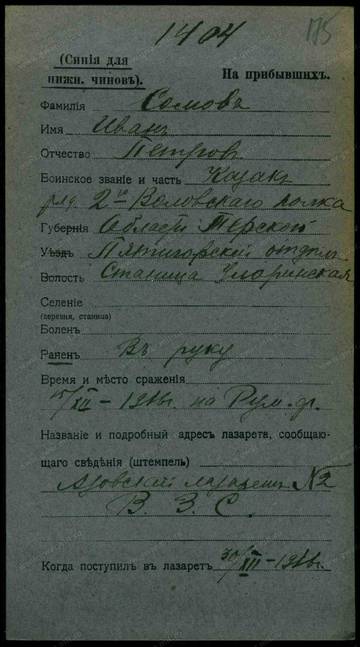 1404
175
(Синія для
нижн. чиновъ).
На прибывшихъ.
Фамилія Сомовъ
Имя Иванъ
Отчество Петровъ
Воинское званіе и часть Казакъ
ряд. 2го полка
Губернія Области Терской
Уѣздъ Пятигорскій отдѣлъ
Волость Станица
Селеніе
(деревня, станица)
Боленъ
Раненъ Въ руку
Время и мѣсто сраженія
XII – 1916г. на Рум. ф.
Названіе и подробный адресъ лазарета, сообщаю-
щаго свѣдѣнія (штемпель)
Азовскій лазаретъ №2
В. З. С.
Когда поступилъ въ лазаретъ 30/XII – 1916г.